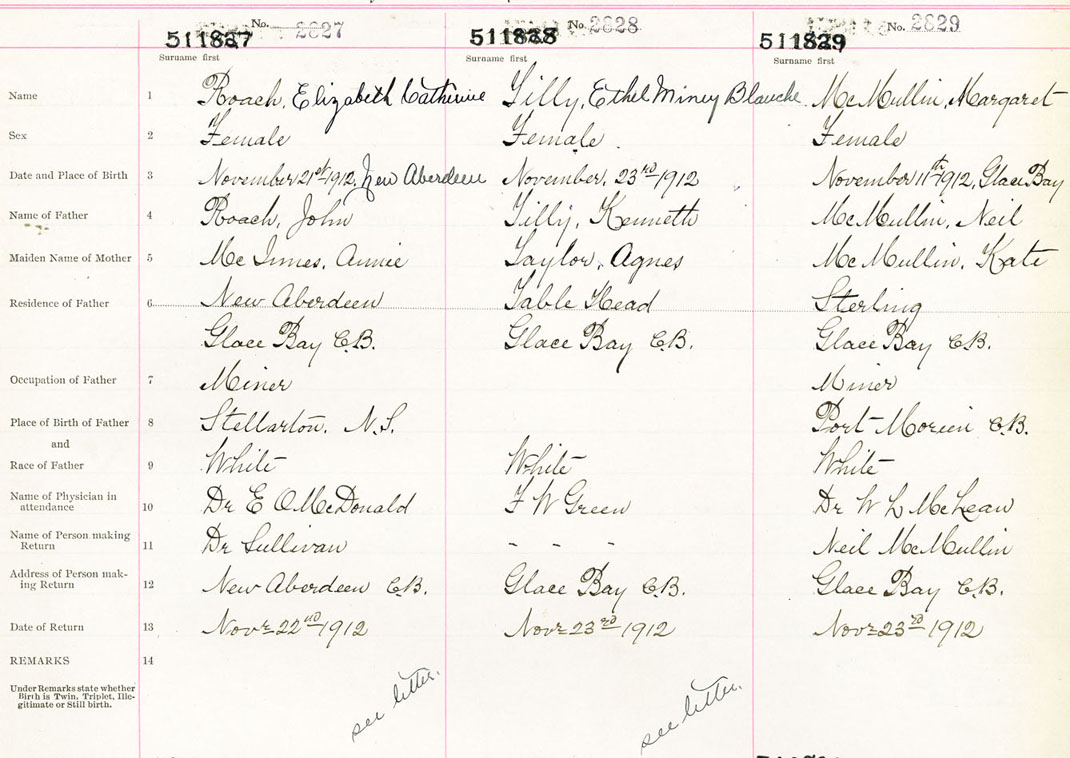 No. 2827 No. 2828 No. 2829
511827 511828 511829
Surname first Surname first Surname first
Name 1 Roach, Elizabeth Catherine Tilly, Ethel Miney Blauche McMullin, Margaret
Sex 2 Female Female Female
Date and Place of Birth 3 November 21st/1912, New Aberdeen November, 23rd/1912 November 11th/1912, Glace Bay
Name of Father 4 Roach, John Tilly, Kenneth McMullin, Neil
Maiden Name of Mother 5 McInnes, Annie Taylor, Agnes McMullin, Kate
Residence of Father 6 New Aberdeen Table Head Sterling
Glace Bay C.B. Glace Bay C.B. Glace Bay C.B.
Occupation of Father 7 Miner Miner
Place of Birth of Father 8 Stellarton, N.S. Port Morien C.B.
and
Race of Father 9 White White White
Name of Physician in
attendance 10 Dr E O McDonald F W Green Dr W L McLean
Name of Person making
Return 11 Dr Sullivan - - - Neil McMullin
Address of Person mak-
ing Return 12 New Aberdeen C.B. Glace Bay C.B. Glace Bay C.B.
Date of Return 13 Novr 22nd/1912 Novr 23rd/1912 Novr 23rd/1912
REMARKS 14
Under Remarks state whether
Birth is Twin, Triplet, Ille-
gitimate or Still birth.
see letter. see letter.